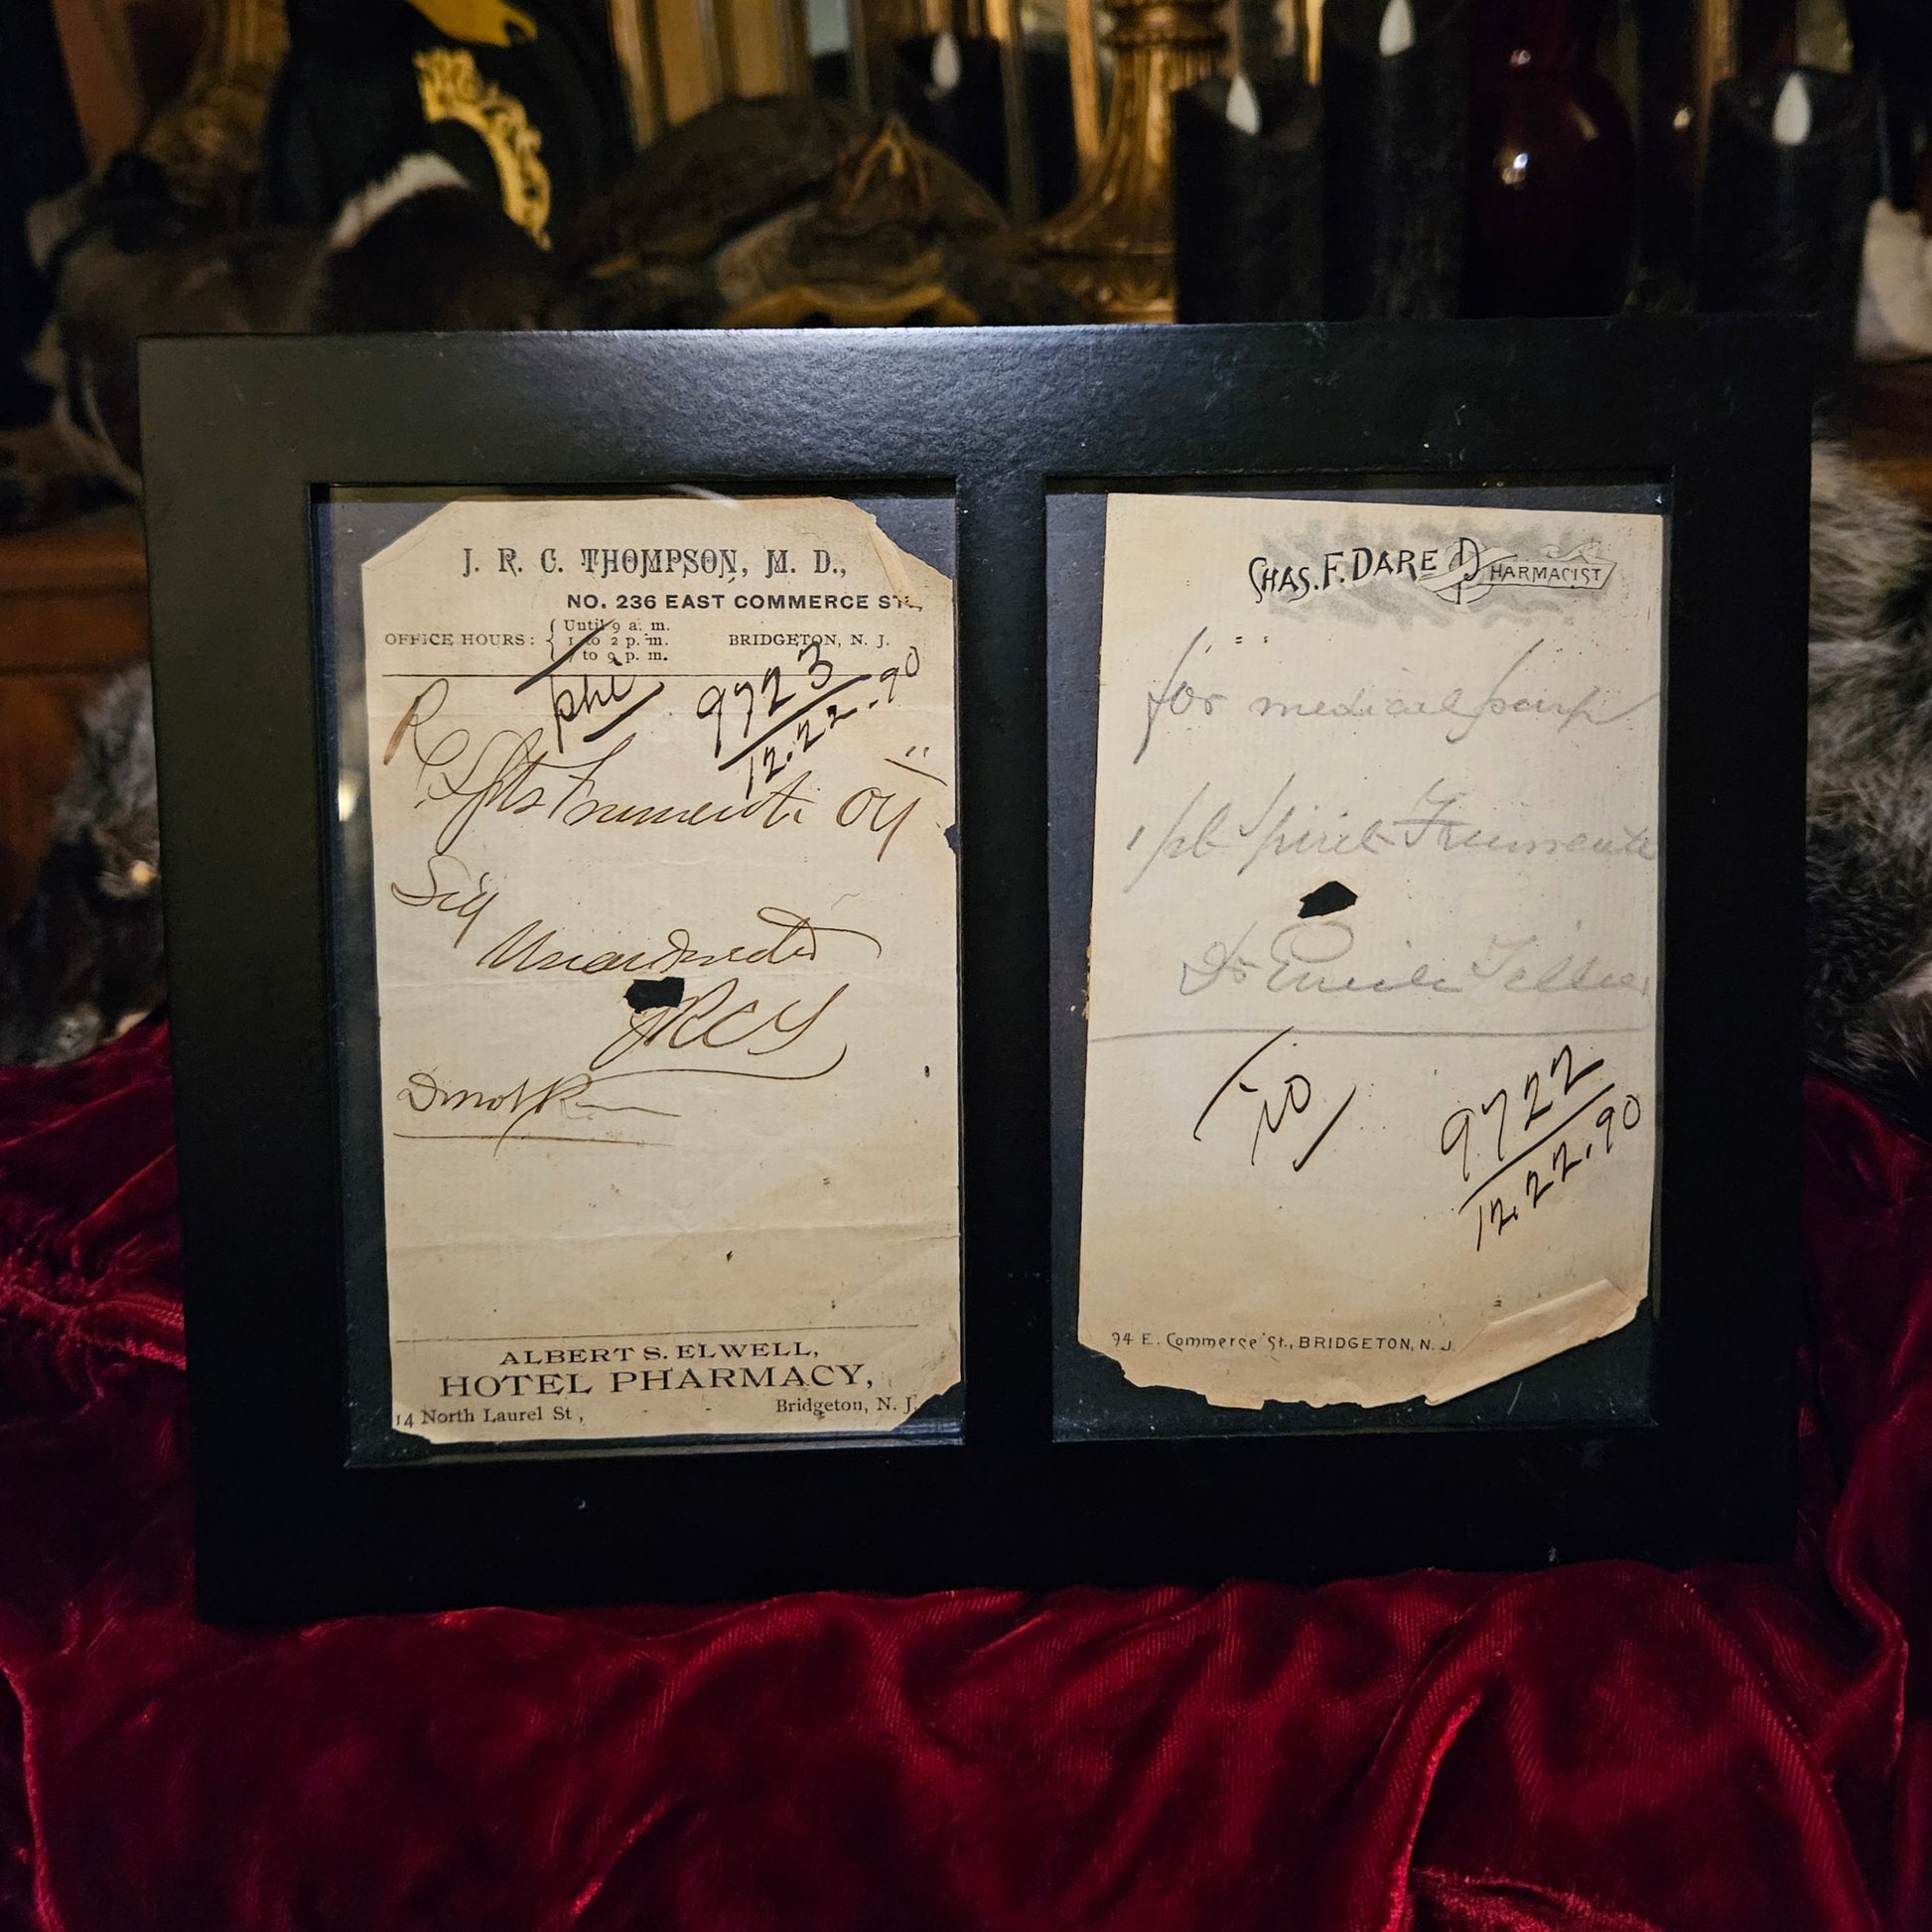 J. R. C. THOMPSON, M. D.,
NO. 236 EAST COMMERCE ST.,
OFFICE HOURS: { Until 9 a. m.
1 to 2 p. m.
7 to 9 p. m.
BRIDGETON, N. J.
R
9723
12.22.90
Spts Frumenti Oij
Sig
As directed
JRCT
ALBERT S. ELWELL,
HOTEL PHARMACY,
14 North Laurel St., Bridgeton, N. J.
CHAS. F. DARE PHARMACIST
for medical purp
1 pt Spirit Frumenti
Dr
To
9722
12.22.90
94 E. Commerce St., BRIDGETON, N. J.